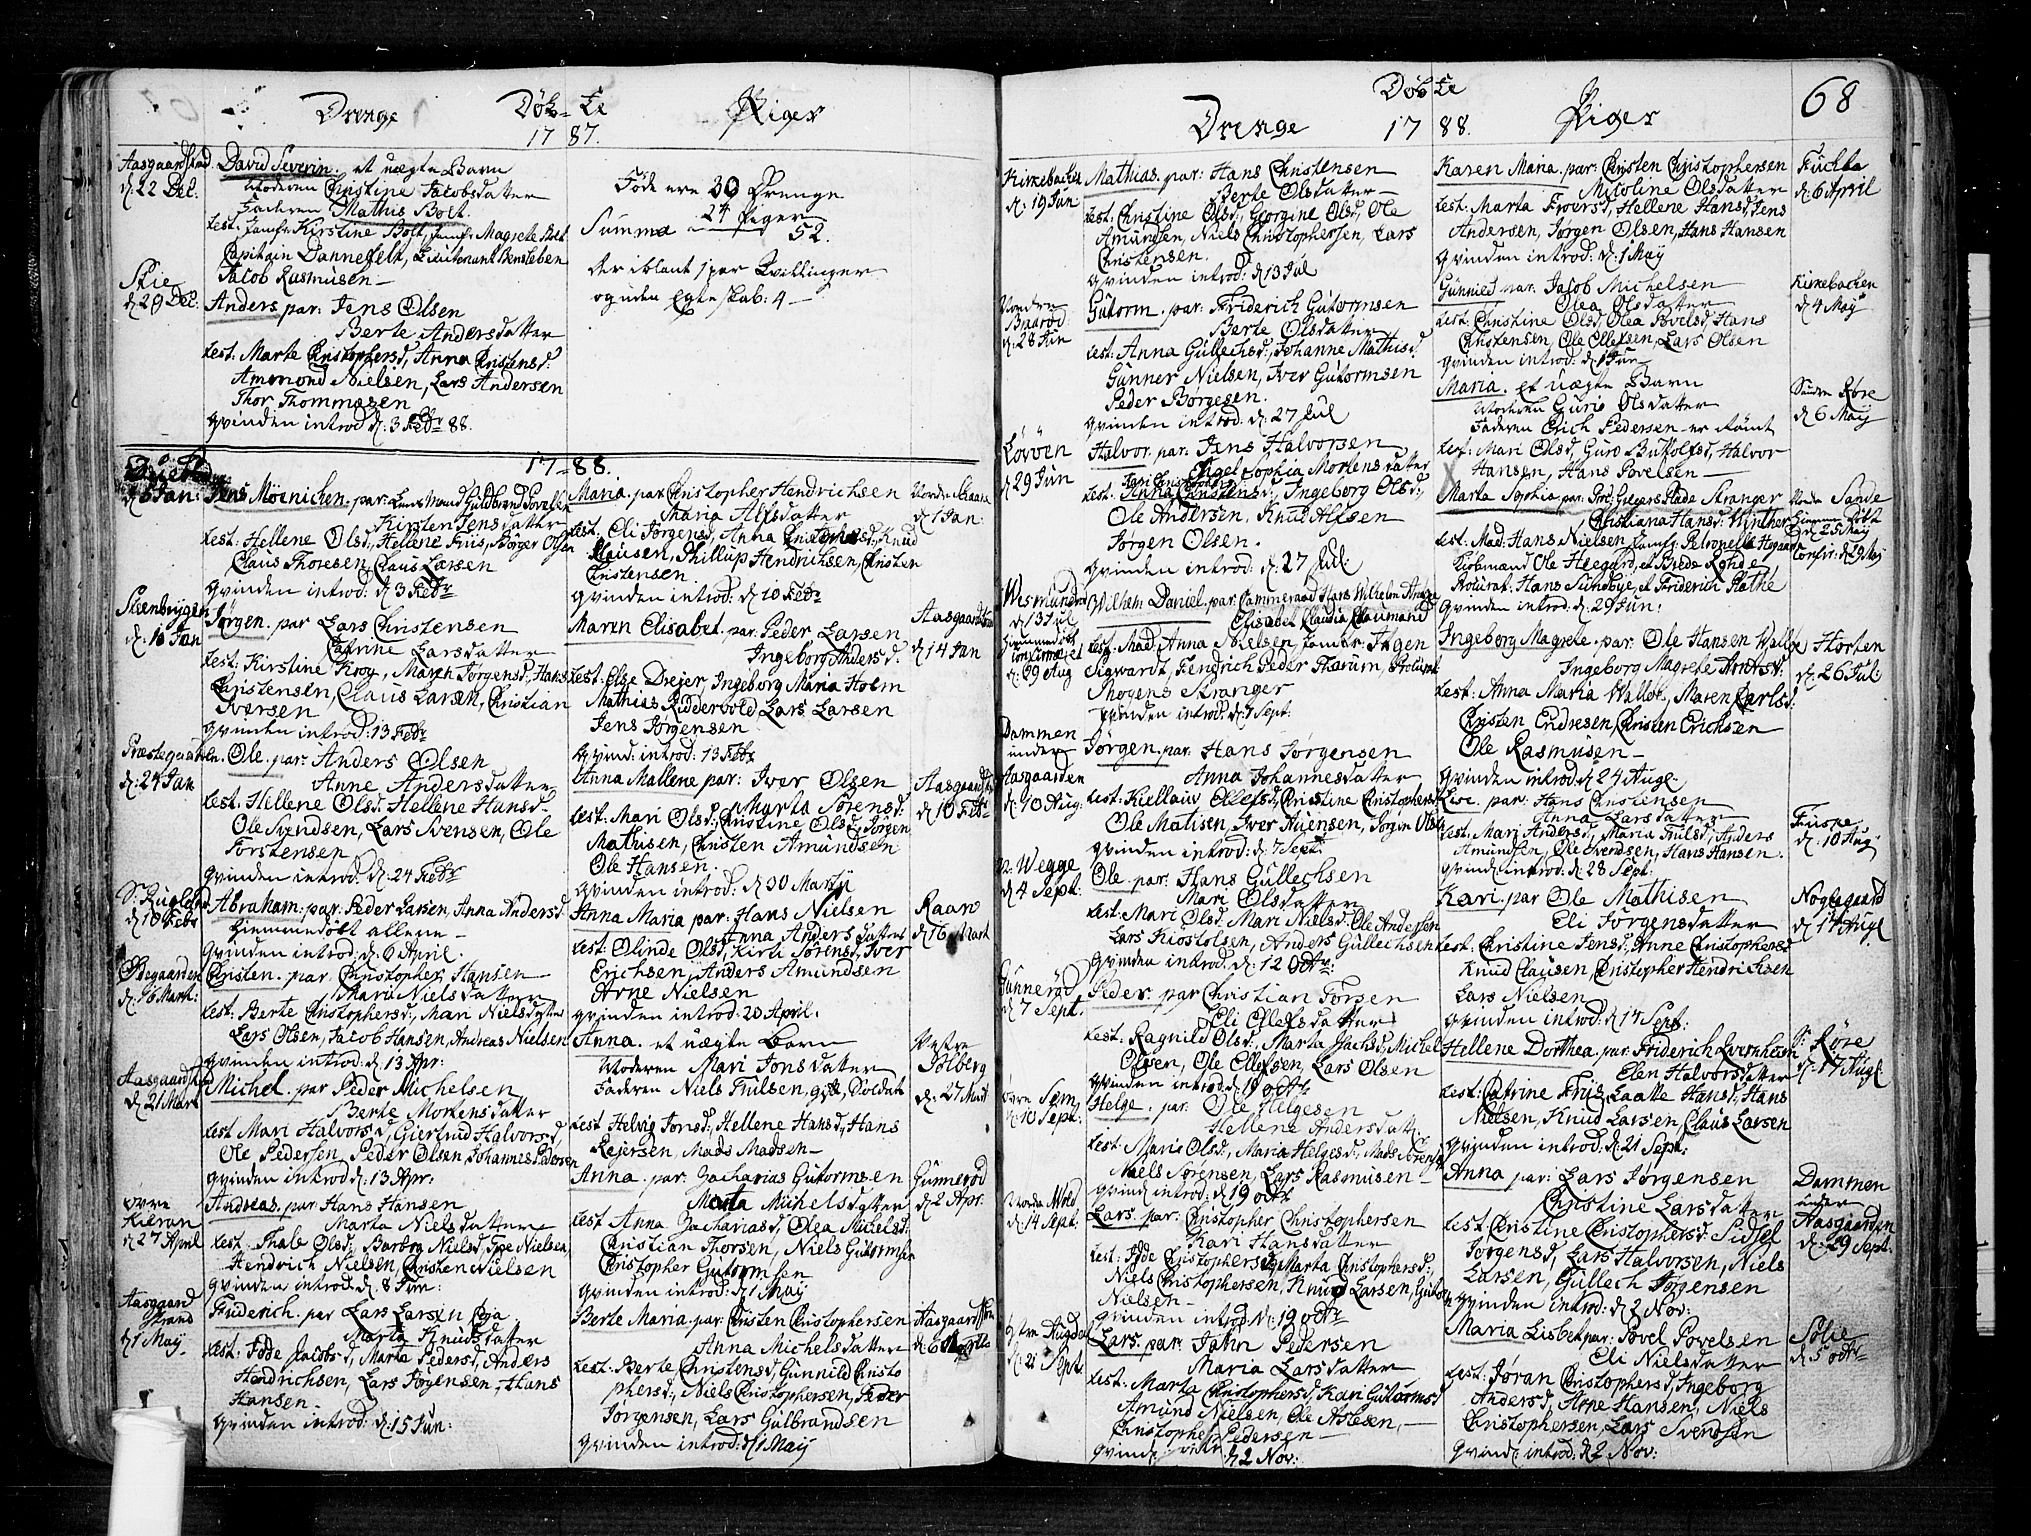 Døb- te
Drenge 17 87. Piger
Aasgaardstrad
d: 22 Dec:
David Severin. et uægte Barn
Moderen Christine Jacobsdatter
Faderen Mathis Bolt.
test: Jomfr: Kirstine Bolt, Jomfr: Magrete Bolt
Capitain Dannefelt, Lieutenant
Jacob Rasmusen
Skie
d: 29 Dec:
Anders par: Jens Olsen
Berte Andersdatter
test: Marte Christophersd, Anna Christensd:
Ammond Nielsen, Lars Andersen
Thor Thommesen
qvinden introd: d: 3 Febr 88.
Føde ere 30 Drenge
24 Piger
Summa 52.
Der iblant 1 par Tvillinger
og uden Egteskab: 4
17=88.
d 6 Jan:
Jens Mörnichen. par: Guldbrand Povelsen
Kirsten Jensdatter
test: Hellene Olsd:, Hellene Friis, Børger Olsen
Claus Thoresen, Claus Larsen
qvinden introd: d: 3 Febr
Steenbryggen
d: 10 Jan
Jørgen. par Lars Christensen
Catrine Larsdatter
test: Kirstine Krog, Maren Jørgensd:, Hans
Christensen, Claus Larsen, Christian
Iversen
qvinden introd: 13 Febr
Præstegaarden
d: 24 Jan
Ole. par: Anders Olsen
Anne Andersdatter
test: Hellene Olsd: Hellene Hansd:
Ole Svendsen, Lars Svensen, Ole
Torstensen
qvinden introd: d: 24 Febr
d 10 Febr
Abraham. par: Peder Larsen, Anna Andersd:
Hiemmedøbt allene
qvinden introd: d: 6 April.
d: 16 Mart:
Christen. par Christopher Hansen
Mari Nielsdatter
test: Berte Christophersd:, Mari Nielsdatter
Lars Olsen, Jacob Hansen, Andreas Nielsen
qvinden introd: d 13 Apr:
Aasgaardstr
d: 21 Mart
Michel. par Peder Michelsen
Berte Mortensdatter
test Mari Halvorsd, Giertrud Halvorsd,
Ole Pedersen, Peder Olsen, Johannes Pedersen
qvinden introd: d: 13 Apr:
øvre
Kieran
d: 27 April
Andreas par Hans Hansen
Marta Nielsdatter
test: Thale Olsd, Barbro Nielsd, Nielsen,
Hendrich Nielsen, Christen Nielsen
qvinden introd: d. 8 Jun:
Aasgaard
strand
d 1 May
Friderich. par Lars Larsen
Marta Knudsdatter
test: Jacobsd, Marta Pedersd, Anders
Hendrichsen, Lars Jørgensen, Hans
Hansen
qvinden introd: d: 15 Jun:
Maria. par Christopher Hendrichsen
Maria Alfsdatter
test. Eli Jørgensd, Anna Christensd, Knud
Clausen, Phillup Hendrichsen, Christen
Christensen.
qvinden introd: d 10 Febr
d 1 Jan:
Maren Elisabet. par: Peder Larsen
Ingeborg Andersd:
test: Else Drejer, Ingeborg Maria Holm
Mathias Riddervold Lars Larsen
Jens Jørgensen
qvind: introd: 13 Febr
Aasgaardstran
d: 14 Jan
Anna Mallene par: Iver Olsen
Marta Sørensd:
test: Mari Olsd:, Christine Olsd: Jørgen
Mathisen, Christen Amundsen
Ole Hansen.
qvinden introd: d 30 Martij
Aasgaardstr
d: 10 Feb:
Anna Maria par: Hans Nielsen
Anna Andersdatter
test: Olinde Olsd:, Kirti Sørensd, Iver
Erichsen, Anders Amundsen
Arne Nielsen
qvinden introd: 20 April.
Raan
d: 16 Mart
Anna. et uægte Barn
Moderen Mari Jonsdatter
Faderen Niels Trulsen, gift Soldat
test Helvig Jonsd:, Hellene Hansd:, Hans
Rejersen, Mads Madsen
Vestre
Solberg
d: 27 Mart
Anna. par: Zacharias Gutormsen
Marta Michelsdatter
test Anna Zachariasd, Olea Michelsd:
Christian Thorsen, Niels Gutormsen
Christopher Gutormsen
qvinden introd: d 1 May
Gunnerød
d: 2 Apr:
Berte Maria. par: Christen Christophersen
Anna Michelsdatter
test: Berte Christensd, Gunnild Christo
phersd:, Niels Christophersen, Peder
Jørgensen, Lars Gulbrandsen
qvinden introd: d 1 Maij
Aasgaardstran
Døbte
Drenge 17 88. Piger 68
Kirkebacken
d: 19 Jun
Mathias. par: Hans Christensen
Berte Olsdatter
test: Christine Olsd:, Georgine Olsd, Ole
Amundsen, Niels Christophersen, Lars
Christensen.
qvinden introd: d 13 Jul
Nordre
d: 28 Jun
Gutorm. par: Friderich Gutormsen
Berte Olsdatter
test: Anna Gullechsd:, Johanne Mathisd
Gunner Nielsen, Iver Gutormsen
Peder Børgesen.
qvinden introd: d: 27 Jul
Løvøen
d: 29 Jun
Halvor. par: Jens Halvorsen
Engel Sophia Mortensdatter
test: Anna Christensd:, Ingeborg Olsd:,
Ole Andersen. Knud Alfsen
Jørgen Olsen.
qvinden introd: d: 27 Jul:
d: 13 Jul
Hiemmedøbt
confirmeret
d: 29 Aug
Wilhelm Daniel. par: Cammeraad Hans Wilhelm
Elisabet Claudia
test: Mad: Anna Nielsen, Jomfr: Ingen
Sigwardt, Fendrich Peder Tharum, Procurat:
Mogens Stranger
qvinden introd: d: 7 Sept:
Dammen
under
Aasgaarden
d: 10 Aug:
Jørgen. par: Hans Jørgensen
Anna Johannesdatter
test: Kiellaug Ollefsd, Christine Christophersd
Ole Matisen, Iver Auensen, Jørgen Olsen
qvinden introd: d: 7 Sept:
n: Wegge
d 4 Sept:
Ole. par: Hans Gullechsen
Mari Olsdatter
test: Mari Olsd: Mari Nielsd: Ole Andersen
Lars Kiostolsen, Anders Gullechsen
qvinden introd: d: 12 Octr:
Gunnerød
d 7 Sept.
Peder. par Christian Torsen
Eli Ellefsdatter
test: Ragnild Olsd:, Marta Jachsd, Michel
Olsen, Ole Ellefsen, Lars Olsen
qvinden introd: d 19 Octr:
øvre Sem
d: 10 Sept:
Helge. par: Ole Helgesen
Hellene Andersdatt:
test: Maria Olsd:, Maria Helgesd:, Mads Sørensen
Niels Sørensen, Lars Rasmusen
qvind: introd: d: 19 octr
d: 14 Sept:
Lars. par: Christopher Christophersen
Kari Hansdatter
test: Christophersd, Marta Christophersd:,
Niels Christophersen, Knud Larsen, Gutorm
Nielsen
qvinden introd: d: 19 octr
d: 21 Sept:
Lars. par: John Pedersen
Maria Larsdatter
test: Marta Christophersd, Kari Gutormsd
Amund Nielsen, Ole Aslesen,
Christopher Pedersen
qvind: introd: d 2 Nov:
Karen Maria. par: Christen Christophersen
Nicoline Olsdatter
test: Marta Hellene Hansd, Jens
Andersen, Jørgen Olsen, Hans Hansen
qvinden introd: d: 1 May
d: 6 April
Gunnied par: Jacob Michelsen
Olea Olsdatter
test: Christine Olsd, Olea Povelsd, Hans
Christensen, Ole Ellefsen, Lars Olsen
qvinden introd: d: 1 Jun
Kirkebacken
d 4 May
Maria. et uægte Barn
Moderen Guro Olsdatter
Faderen Erich Pedersen er rømt
test: Mari Olsd, Guro Butolfsd, Halvor
Hansen, Hans Povelsen
Søndre Røre
d: 6 Maij
Marta Sophia par: Proc: Gregers Stranger
Christiana Hansd: Winther
test: Mad: Hans Nielsen Jomfr: Petronelle Hegaard
Kiøbmand Ole Heegard, et Brede
Procurat: Hans Sundbye, et Friderich Plathe
qvinden introd: d: 29 Jun:
Sande
d: 25 Maij
confir: d: 29 Maij
Ingeborg Magrete. par: Ole Hansen Walløe
Ingeborg Magrete
test: Anna Maria Walløe, Maren Carlsd:
Christen Endresen, Christen Erichsen
Ole Rasmusen
qvinden introd: d 24 Aug:
Horten
d: 26 Jul:
Lise. par: Hans Christensen
Anna Larsdatter
test: Mari Andersd, Maria Trulsd, Anders
Amundsen, Ole Svendsen, Hans Hansen.
qvinden introd: d: 28 Sept:
d: 10 Aug
Kari. par Ole Mathisen
Eli Jørgensdatter
test: Christine Jensd, Anne Christophersd
Knud Clausen, Christopher Hendrichsen
Lars Nielsen
qvinden introd: d 14 Sept:
Noglegaard
d: 17 Augl
Hellene Dorthea. par: Friderich
Elen Halvorsdatter
test: Catrine Friis, Laatte Hansd:, Hans
Nielsen, Knud Larsen, Claus Larsen
qvinden introd: d: 21 Sept:
S: Røre
d: 17 Augl
Anna par: Lars Jørgensen
Christine Larsdatter
test Christine Christophersd: Sidsel
Jørgensd, Lars Halvorsen, Niels
Larsen, Gullech Jørgensen
qvinden introd: d: 2 Nov:
Dammen
under
Aasgaarden
d: 29 Sept:
Maria Lisbet par: Povel Povelsen
Eli Nielsdatter
test: Jøran Christophersd, Ingeborg
Andersd, Arne Hansen, Niels
Christophersen, Lars Svendsen
qvind: introd: d: 2 Nov:
Solie
d: 5 octr